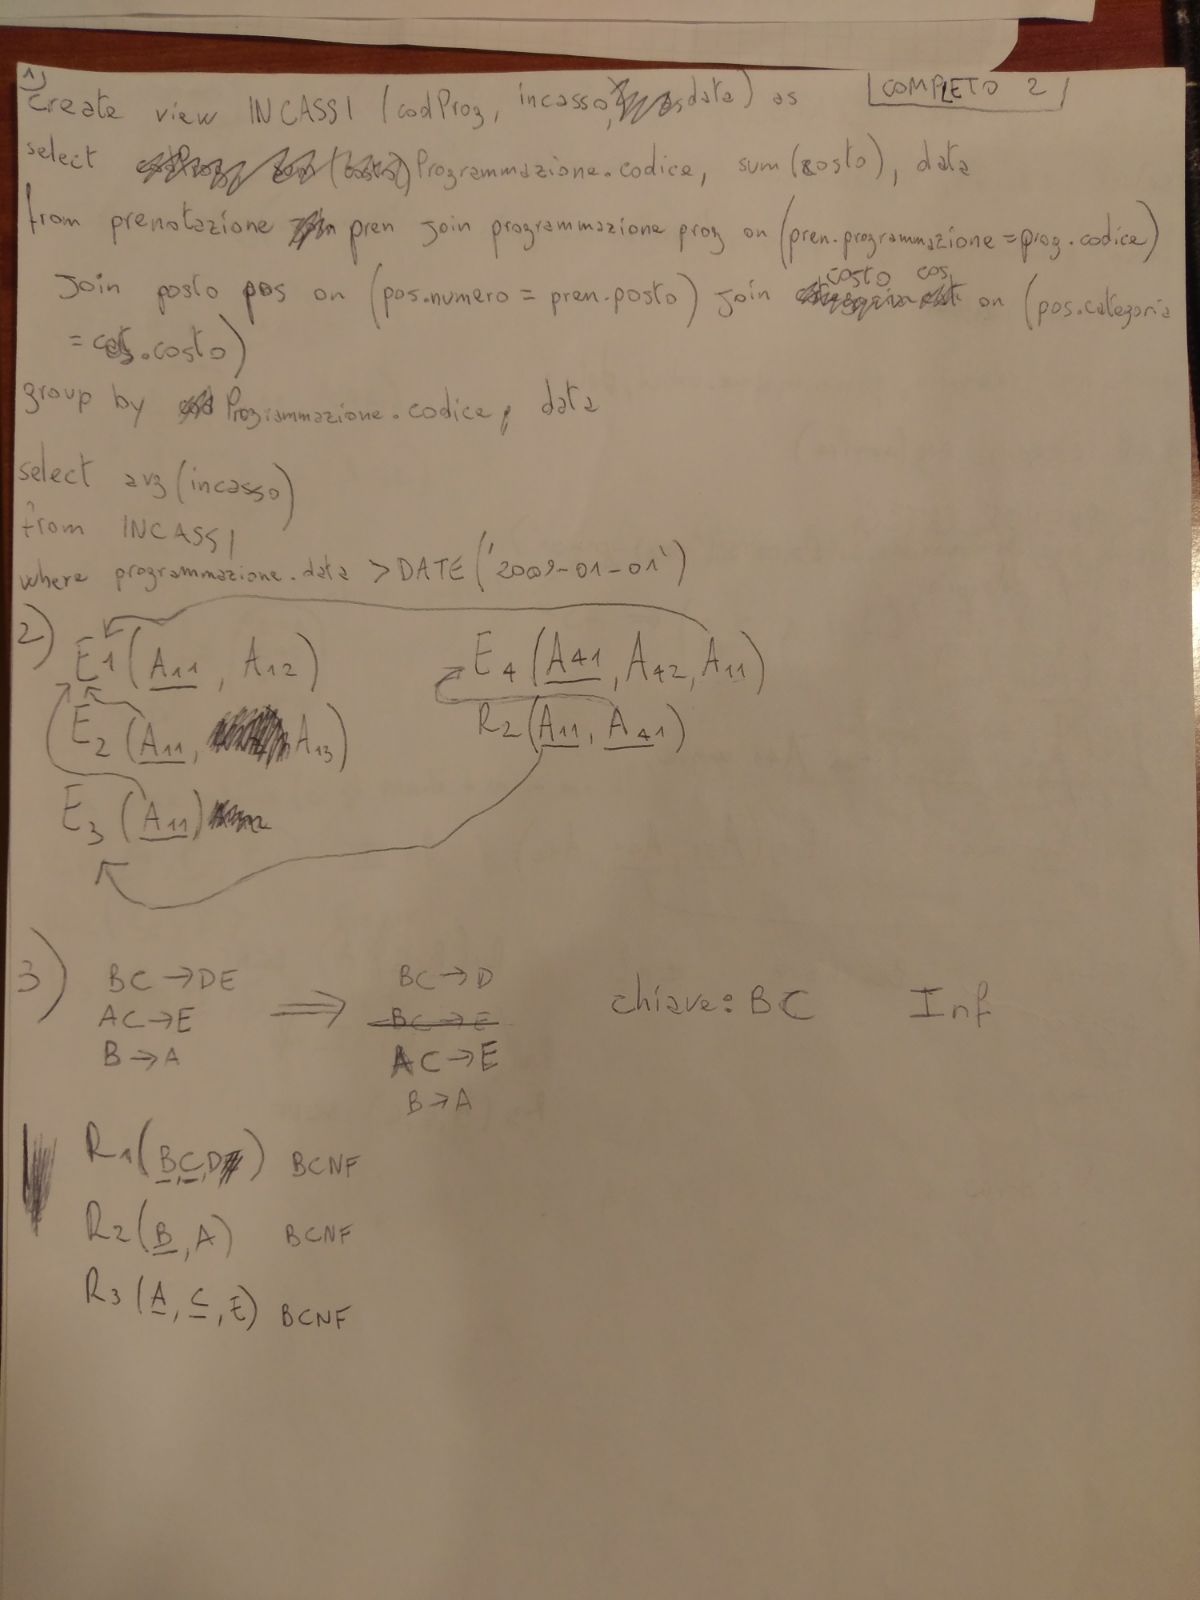 1)
COMPLETO 2
Create view INCASSI (codProg, incasso, data) as
select Programmazione.codice, sum(costo), data
from prenotazione pren join programmazione prog on (pren.programmazione = prog.codice)
join posto pos on (pos.numero = pren.posto) join costo cos on (pos.categoria
= cos.costo)
group by Programmazione.codice, data
select avg(incasso)
from INCASSI
where programmazione.data > DATE('2009-01-01')
2)
E1 (A11, A12)
E4 (A41, A42, A11)
E2 (A11, A13)
R2 (A11, A41)
E3 (A11)
3)
BC → DE
AC → E
B → A
⇒
BC → D
BC → E
AC → E
B → A
chiave: BC
Inf
R1 (B, C, D) BCNF
R2 (B, A) BCNF
R3 (A, C, E) BCNF